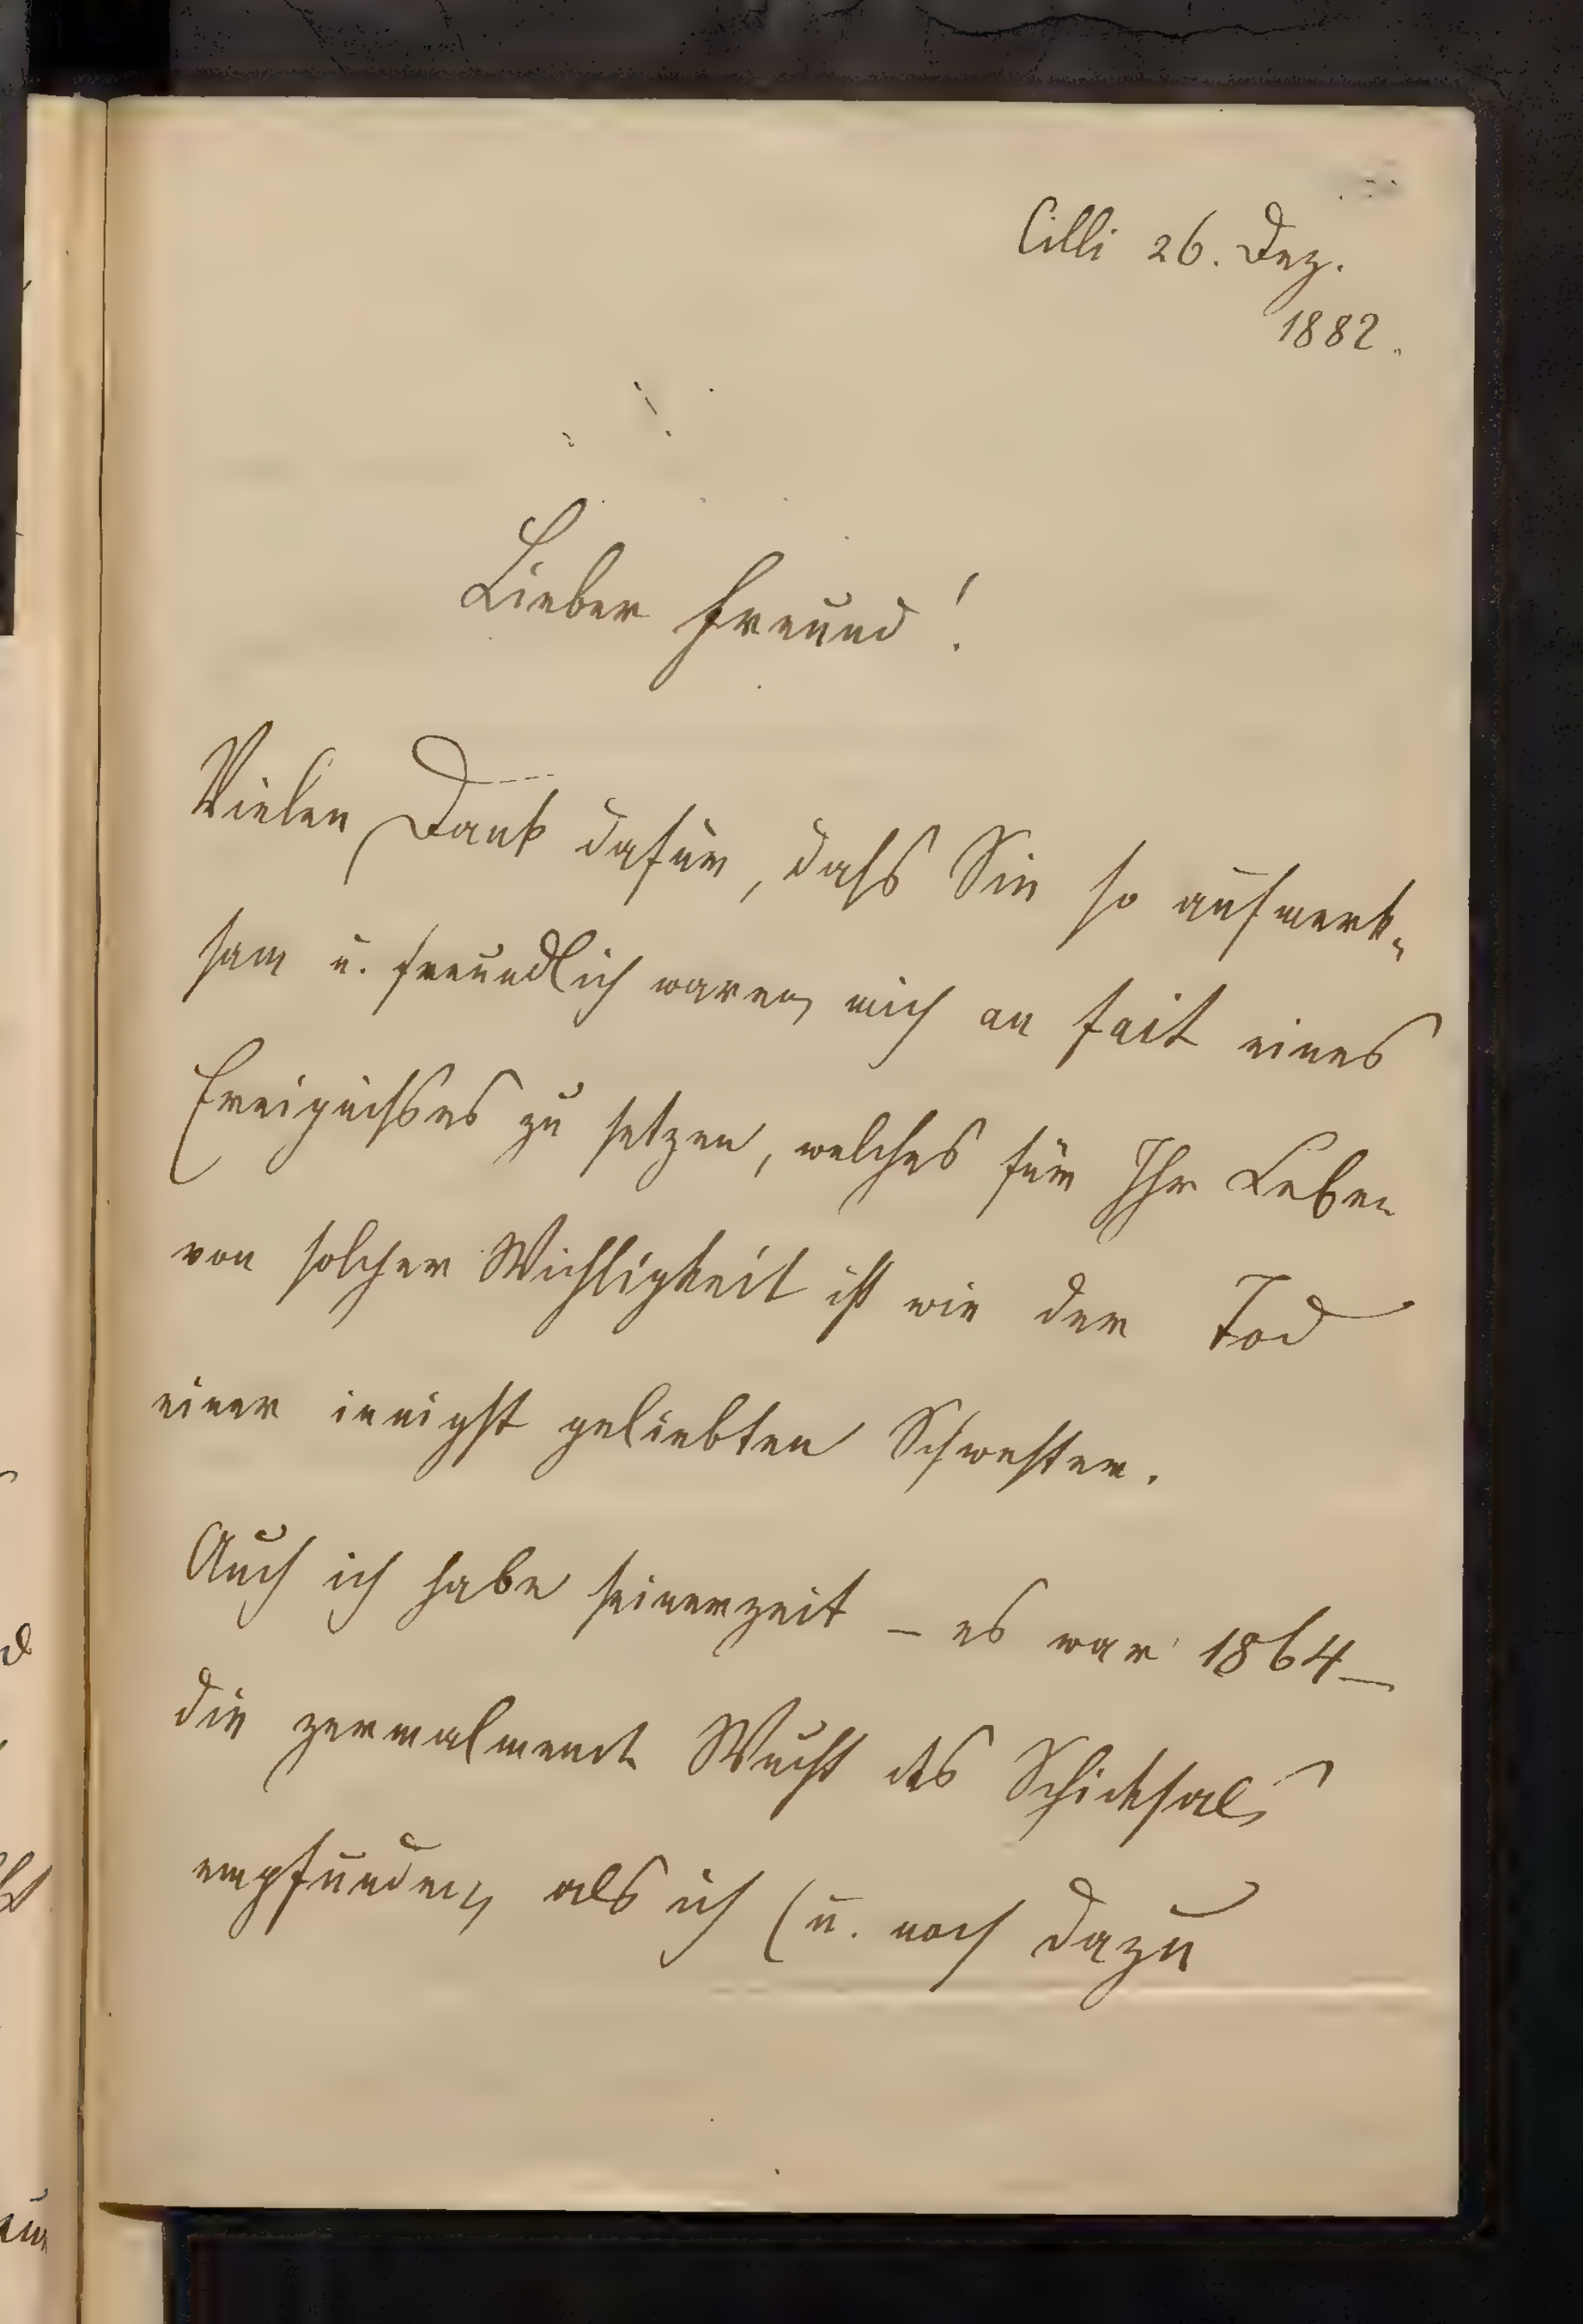 Cilli 26. Dez.
1882.
Lieber Freund!
Vielen Dank dafür, dass Sie so aufmerk-
sam u. freundlich waren, mich au fait eines
Ereignisses zu setzen, welches für Ihr Leben
von solcher Wichtigkeit ist wie der Tod
einer innigst geliebten Schwester.
Auch ich habe seinerzeit – es war 1864 –
die zermalmende Wucht des Schicksals
empfunden, als ich (u. noch dazu